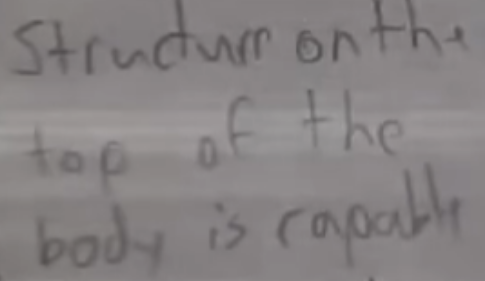 Structure on the
top of the
body is capable